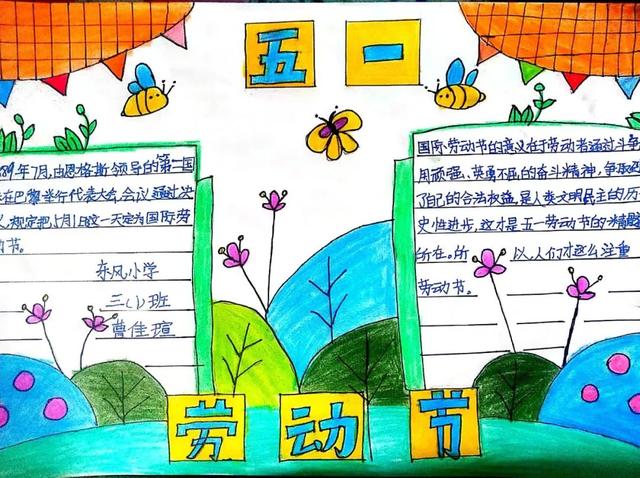 五一
89年7月,由恩格斯领导的第二国
在巴黎举行代表大会,会议通过决
规定把5月1日这一天定为国际劳
节。
东风小学
三(1)班
曹佳瑄
国际劳动节的意义在于劳动者通过斗争
用顽强、英勇不屈的奋斗精神,争取
了自己的合法权益,是人类文明民主的历
史性进步,这才是五一劳动节的精髓
所在。所 以,人们才这么注重
劳动节。
劳动节